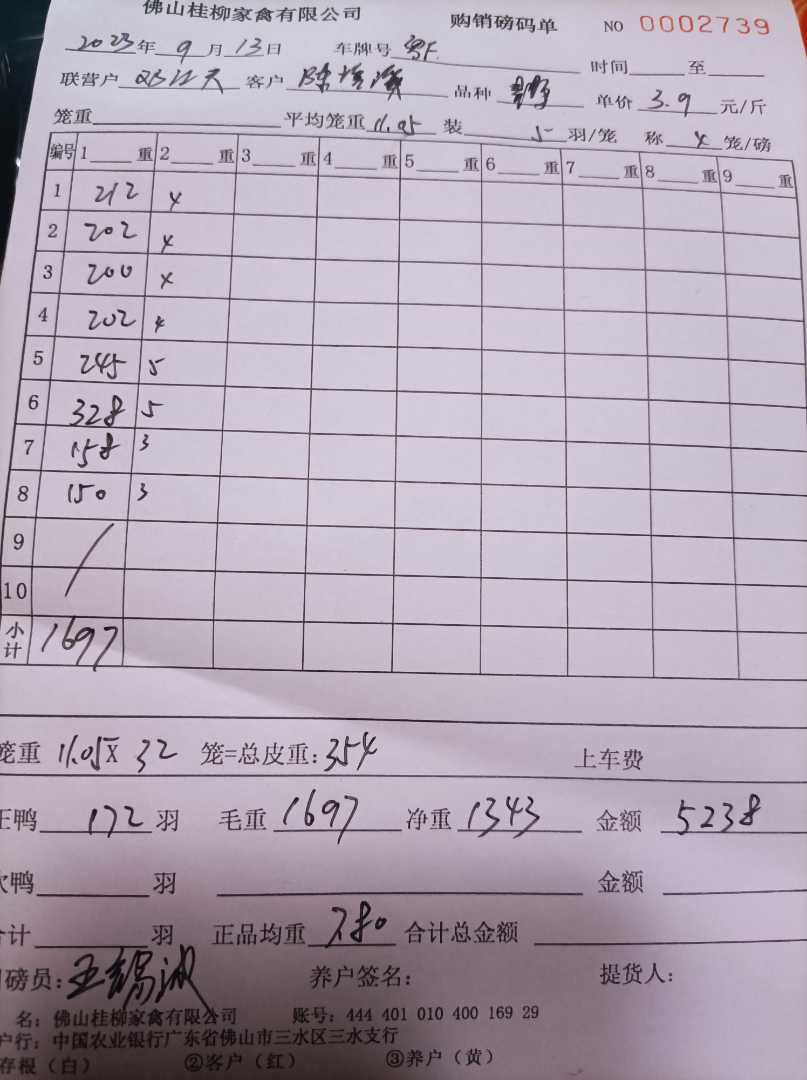 佛山桂柳家禽有限公司 购销磅码单 NO 0002739
2023年9月13日 车牌号 时间 至
联营户 客户 陈 品种 单价 3.9 元/斤
笼重 平均笼重 11.05 装 5 羽/笼 称 4 笼/磅
编号 1 重 2 重 3 重 4 重 5 重 6 重 7 重 8 重 9 重
1 212 4
2 202 4
3 200 4
4 202 4
5 245 5
6 328 5
7 158 3
8 150 3
9
10
小计 1697
笼重 11.05 X 32 笼=总皮重:354 上车费
正鸭 172 羽 毛重 1697 净重 1343 金额 5238
次鸭 羽 金额
合计 羽 正品均重 7.80 合计总金额
司磅员: 王锡波 养户签名: 提货人:
名: 佛山桂柳家禽有限公司 账号: 444 401 010 400 169 29
户行: 中国农业银行广东省佛山市三水区三水支行
存根(白) ②客户(红) ③养户(黄)